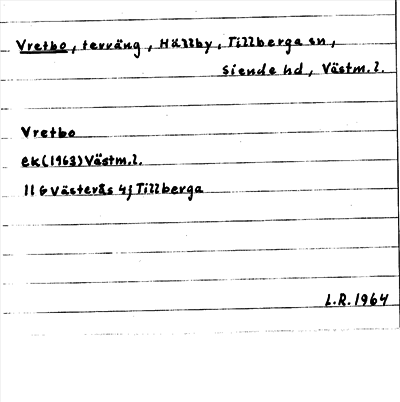 Vretbo, terräng, Hällby, Tillberga sn,
Siende hd, Västm. l.
Vretbo
ek (1963) Västm. l.
11 G Västerås 4j Tillberga
L.R. 1964